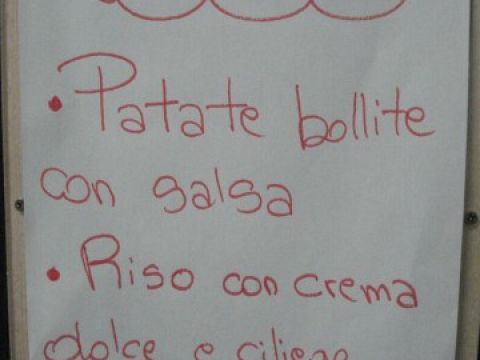 • Patate bollite
con salsa
• Riso con crema
dolce e